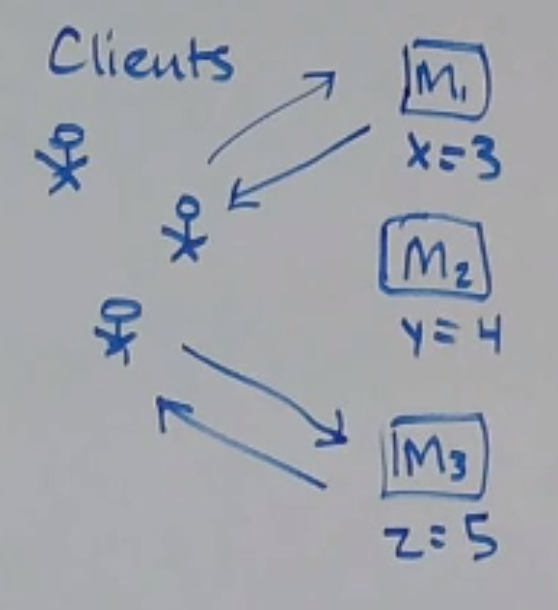 Clients
M₁
x=3
M₂
y=4
M₃
z=5